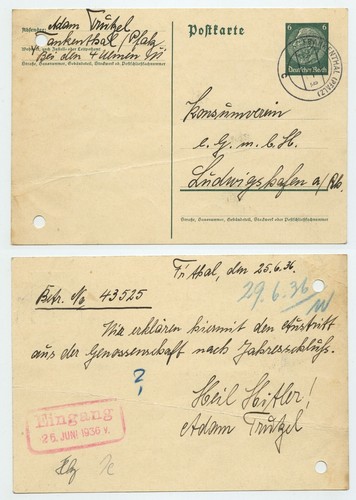 Absender: Adam Trutzel
Frankenthal/Pfalz
Bei den 4 Ulmen
Straße, Hausnummer, Gebäudeteil, Stockwerk od. Postschließfachnummer
Postkarte
6 6
Deutsches Reich
FRANKENTHAL (PFALZ)
Konsumverein
e. G. m. b. H.
Ludwigshafen a/Rh.
Straße, Hausnummer, Gebäudeteil, Stockwerk oder Postschließfachnummer
F'thal, den 25.6.36.
29.6.36
Betr. No 43525
Wir erklären hiermit den Austritt
aus der Genossenschaft nach Jahresschluss.
?
Heil Hitler!
Adam Trutzel
Eingang
26. JUNI 1936 V.